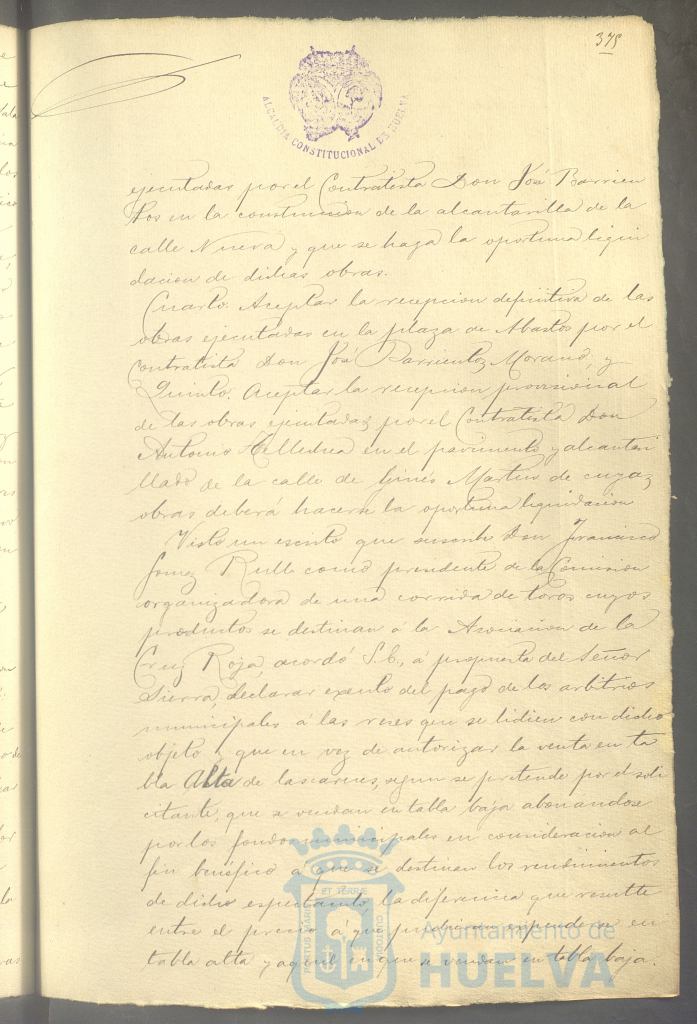 375
ALCALDIA CONSTITUCIONAL DE HUELVA
ejecutadas por el Contratista Don José Barrien
tos en la construccion de la alcantarilla de la
calle Nueva y que se haga la oportuna liqui
dacion de dichas obras.
Cuarto. Aceptar la recepcion definitiva de las
obras ejecutadas en la plaza de Abastos por el
Contratista Don José Barrientos Morano, y
Quinto. Aceptar la recepcion provisional
de las obras ejecutadas por el Contratista Don
Antonio en el pavimento y alcantari
llado de la calle de Ginés Martin de cuyas
obras deberá hacerse la oportuna liquidacion
Visto un escrito que suscribe Don Francisco
Gomez Rull como presidente de la Comision
organizadora de una corrida de toros cuyos
productos se destinan á la Asociacion de la
Cruz Roja, acordó S.E., á propuesta del Señor
Sierra, declarar exento del pago de los arbitrios
municipales á las reses que se lidien con dicho
objeto y que en vez de autorizar la venta en ta
bla Alta de las carnes, segun se pretende por el soli
citante, que se vendan en tabla baja abonandose
por los fondos municipales en consideracion al
fin benéfico á que se destinan los rendimientos
de dicho espectaculo, la diferencia que resulte
entre el precio á que pudieran expenderse en
tabla alta y aquel en que se vendan en tabla baja.
Ayuntamiento de
HUELVA